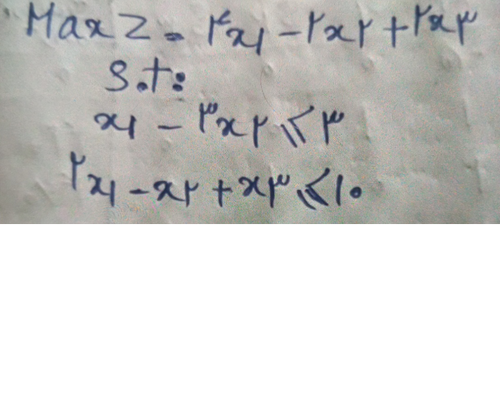 Max Z = ۴x۱ - ۲x۲ + ۲x۳
s.t:
x۱ - ۳x۲ ⩽ ۳
۲x۱ - x۲ + x۳ ⩽ ۱۰